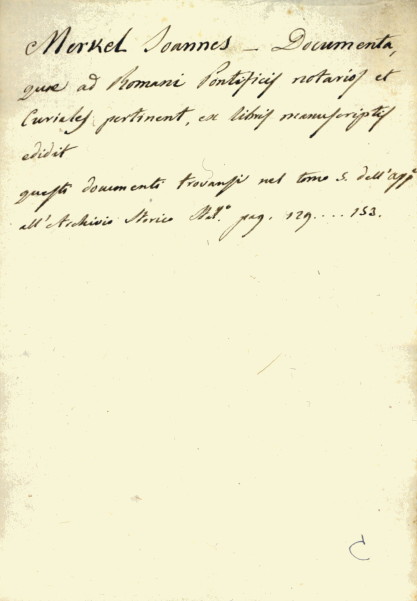 Merkel Ioannes _ Documenta,
quae ad Romani Pontificis notarios et
Curiales pertinent, ex libris manuscriptis
edidit
questi documenti trovansi nel tomo 5. dell'app.e
all'Archivio Storico Ital.o pag. 129....153.
C